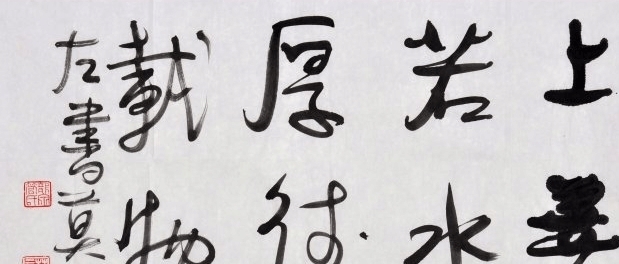 上善
若水
厚德
載物
左書莫